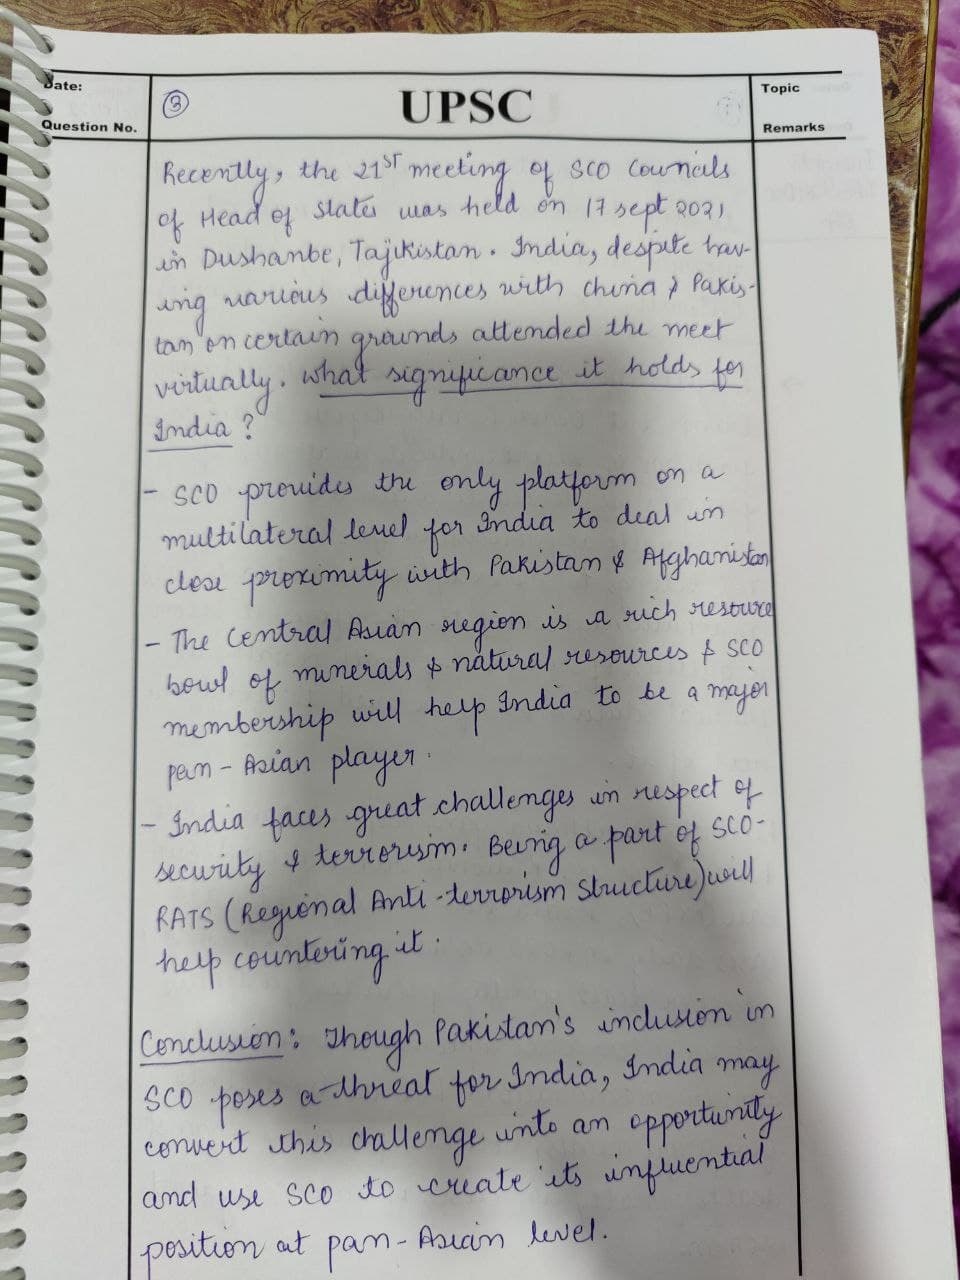 Date:
Question No.
3
UPSC
Topic
Remarks
Recently, the 21ST meeting of SCO Councils
of Head of States was held on 17 sept 2021
in Dushanbe, Tajikistan. India, despite hav-
ing various differences with china & Pakis-
tan on certain grounds attended the meet
virtually. What significance it holds for
India?
- SCO provides the only platform on a
multilateral level for India to deal in
close proximity with Pakistan & Afghanistan
- The Central Asian region is a rich resource
bowl of minerals & natural resources & SCO
membership will help India to be a major
pan-Asian player.
- India faces great challenges in respect of
security & terrorism. Being a part of SCO-
RATS (Regional Anti-terrorism Structure) will
help countering it.
Conclusion: Though Pakistan's inclusion in
SCO poses a threat for India, India may
convert this challenge into an opportunity
and use SCO to create its influential
position at pan-Asian level.